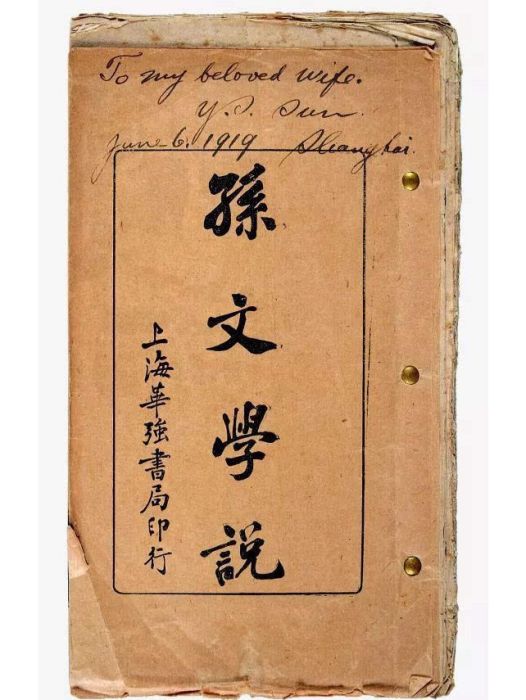 To my beloved wife.
Y. S. Sun.
June 6. 1919 Shanghai.
孫文學說
上海華強書局印行